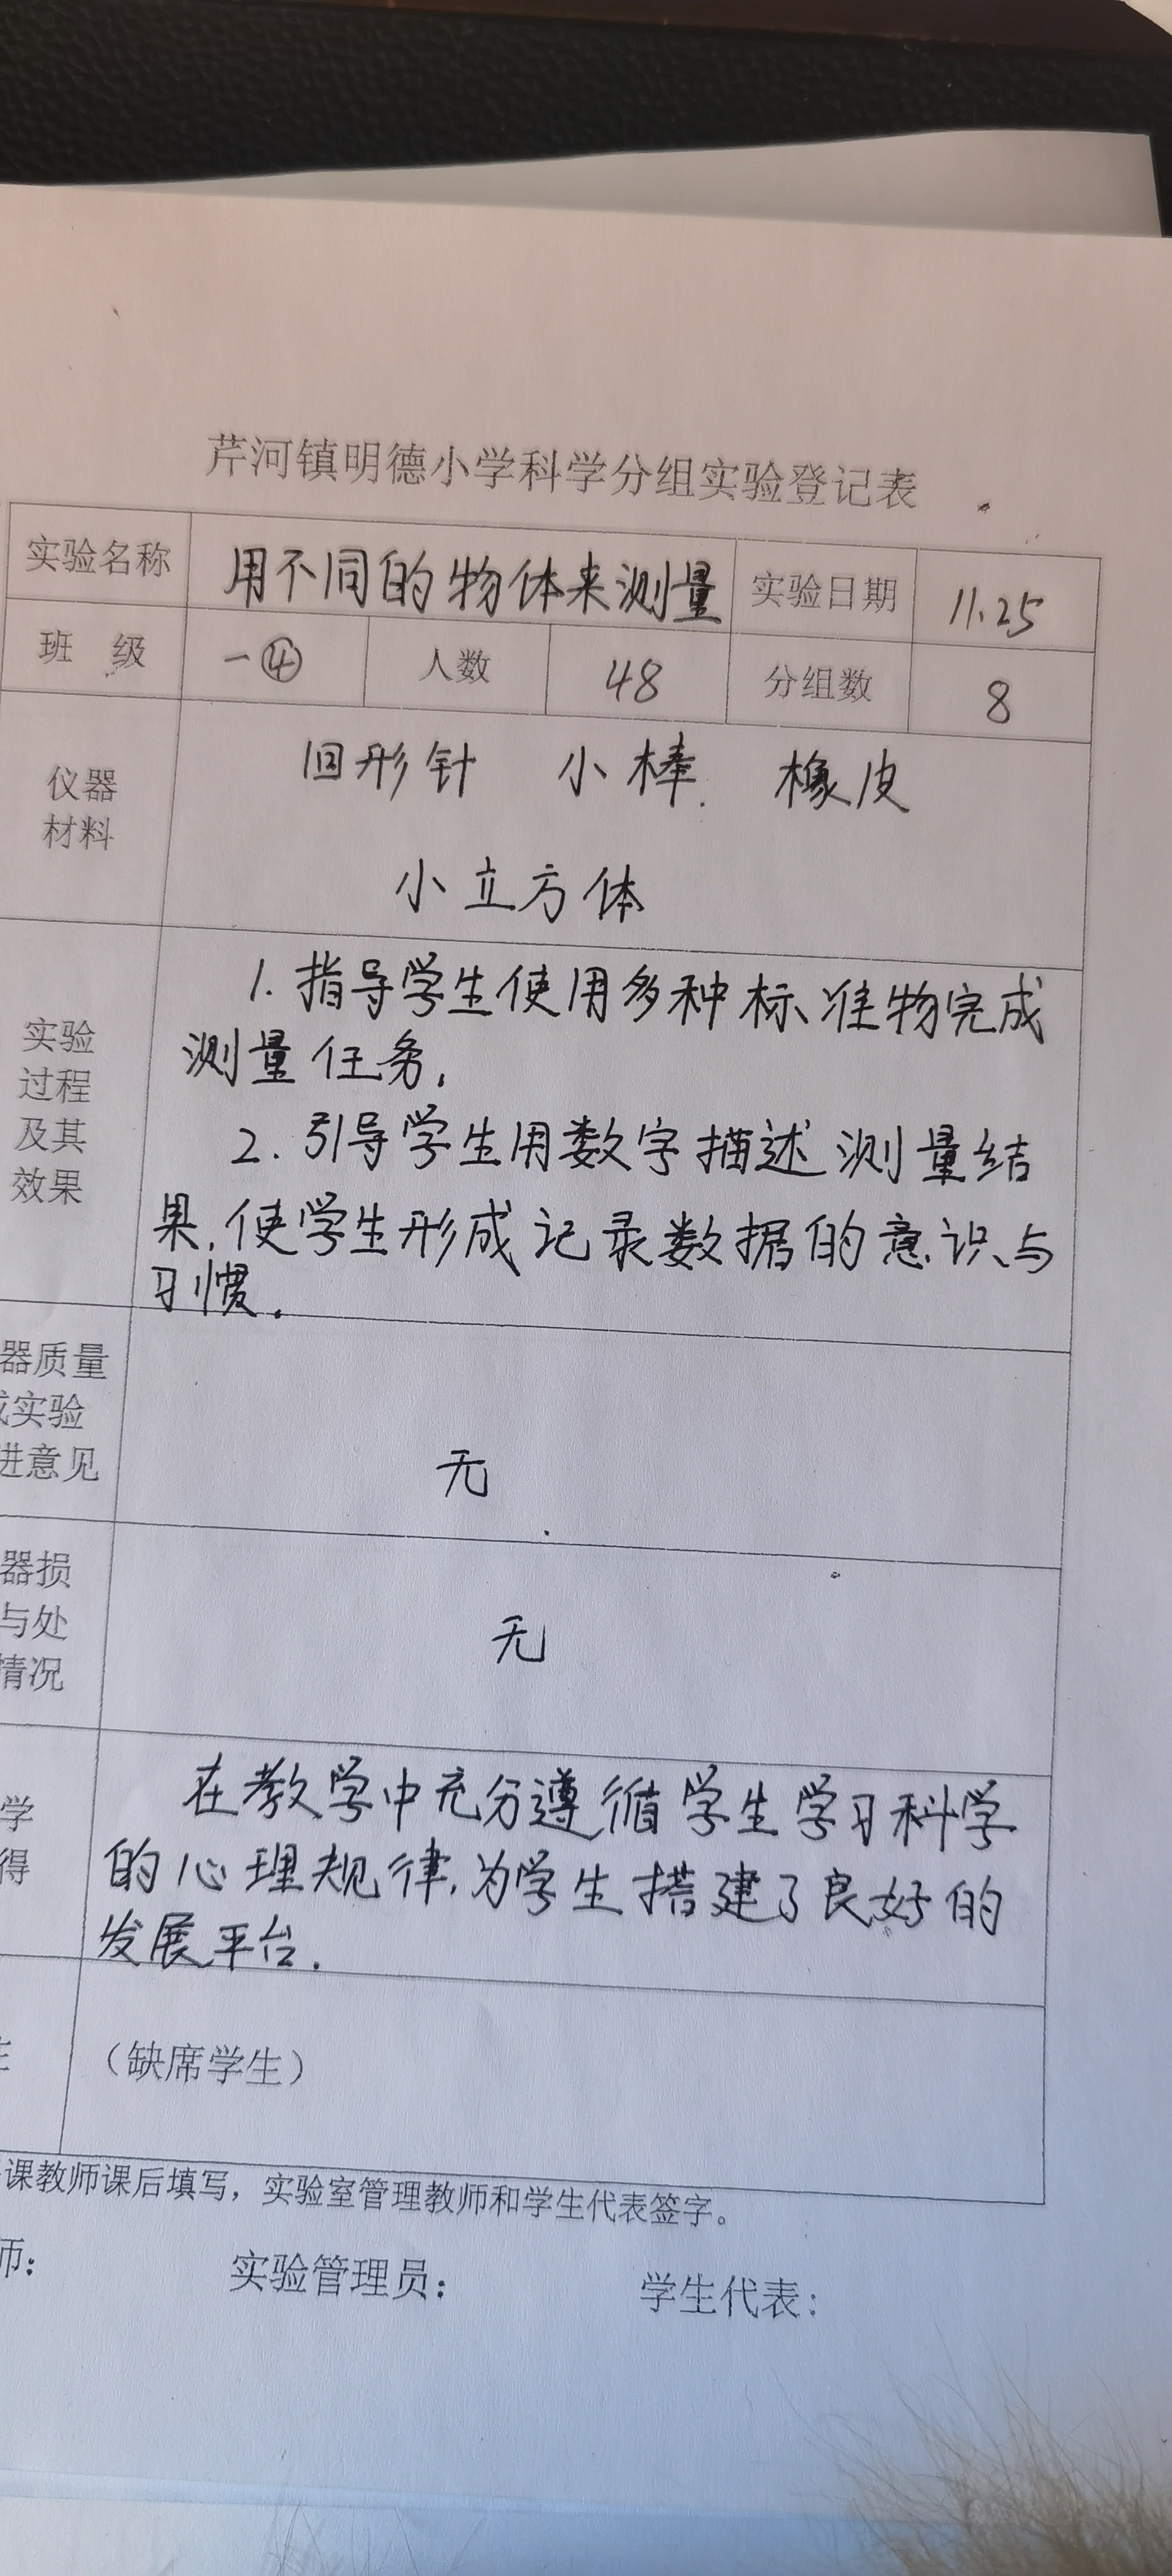 芹河镇明德小学科学分组实验登记表
实验名称 用不同的物体来测量 实验日期 11.25
班 级 一④ 人数 48 分组数 8
仪器
材料
回形针 小棒 橡皮
小立方体
实验
过程
及其
效果
1. 指导学生使用多种标准物完成
测量任务.
2. 引导学生用数字描述测量结
果,使学生形成记录数据的意识与
习惯.
器质量
实验
进意见
无
器损
与处
情况
无
学
得
在教学中充分遵循学生学习科学
的心理规律,为学生搭建了良好的
发展平台.
(缺席学生)
课教师课后填写，实验室管理教师和学生代表签字。
师： 实验管理员： 学生代表：